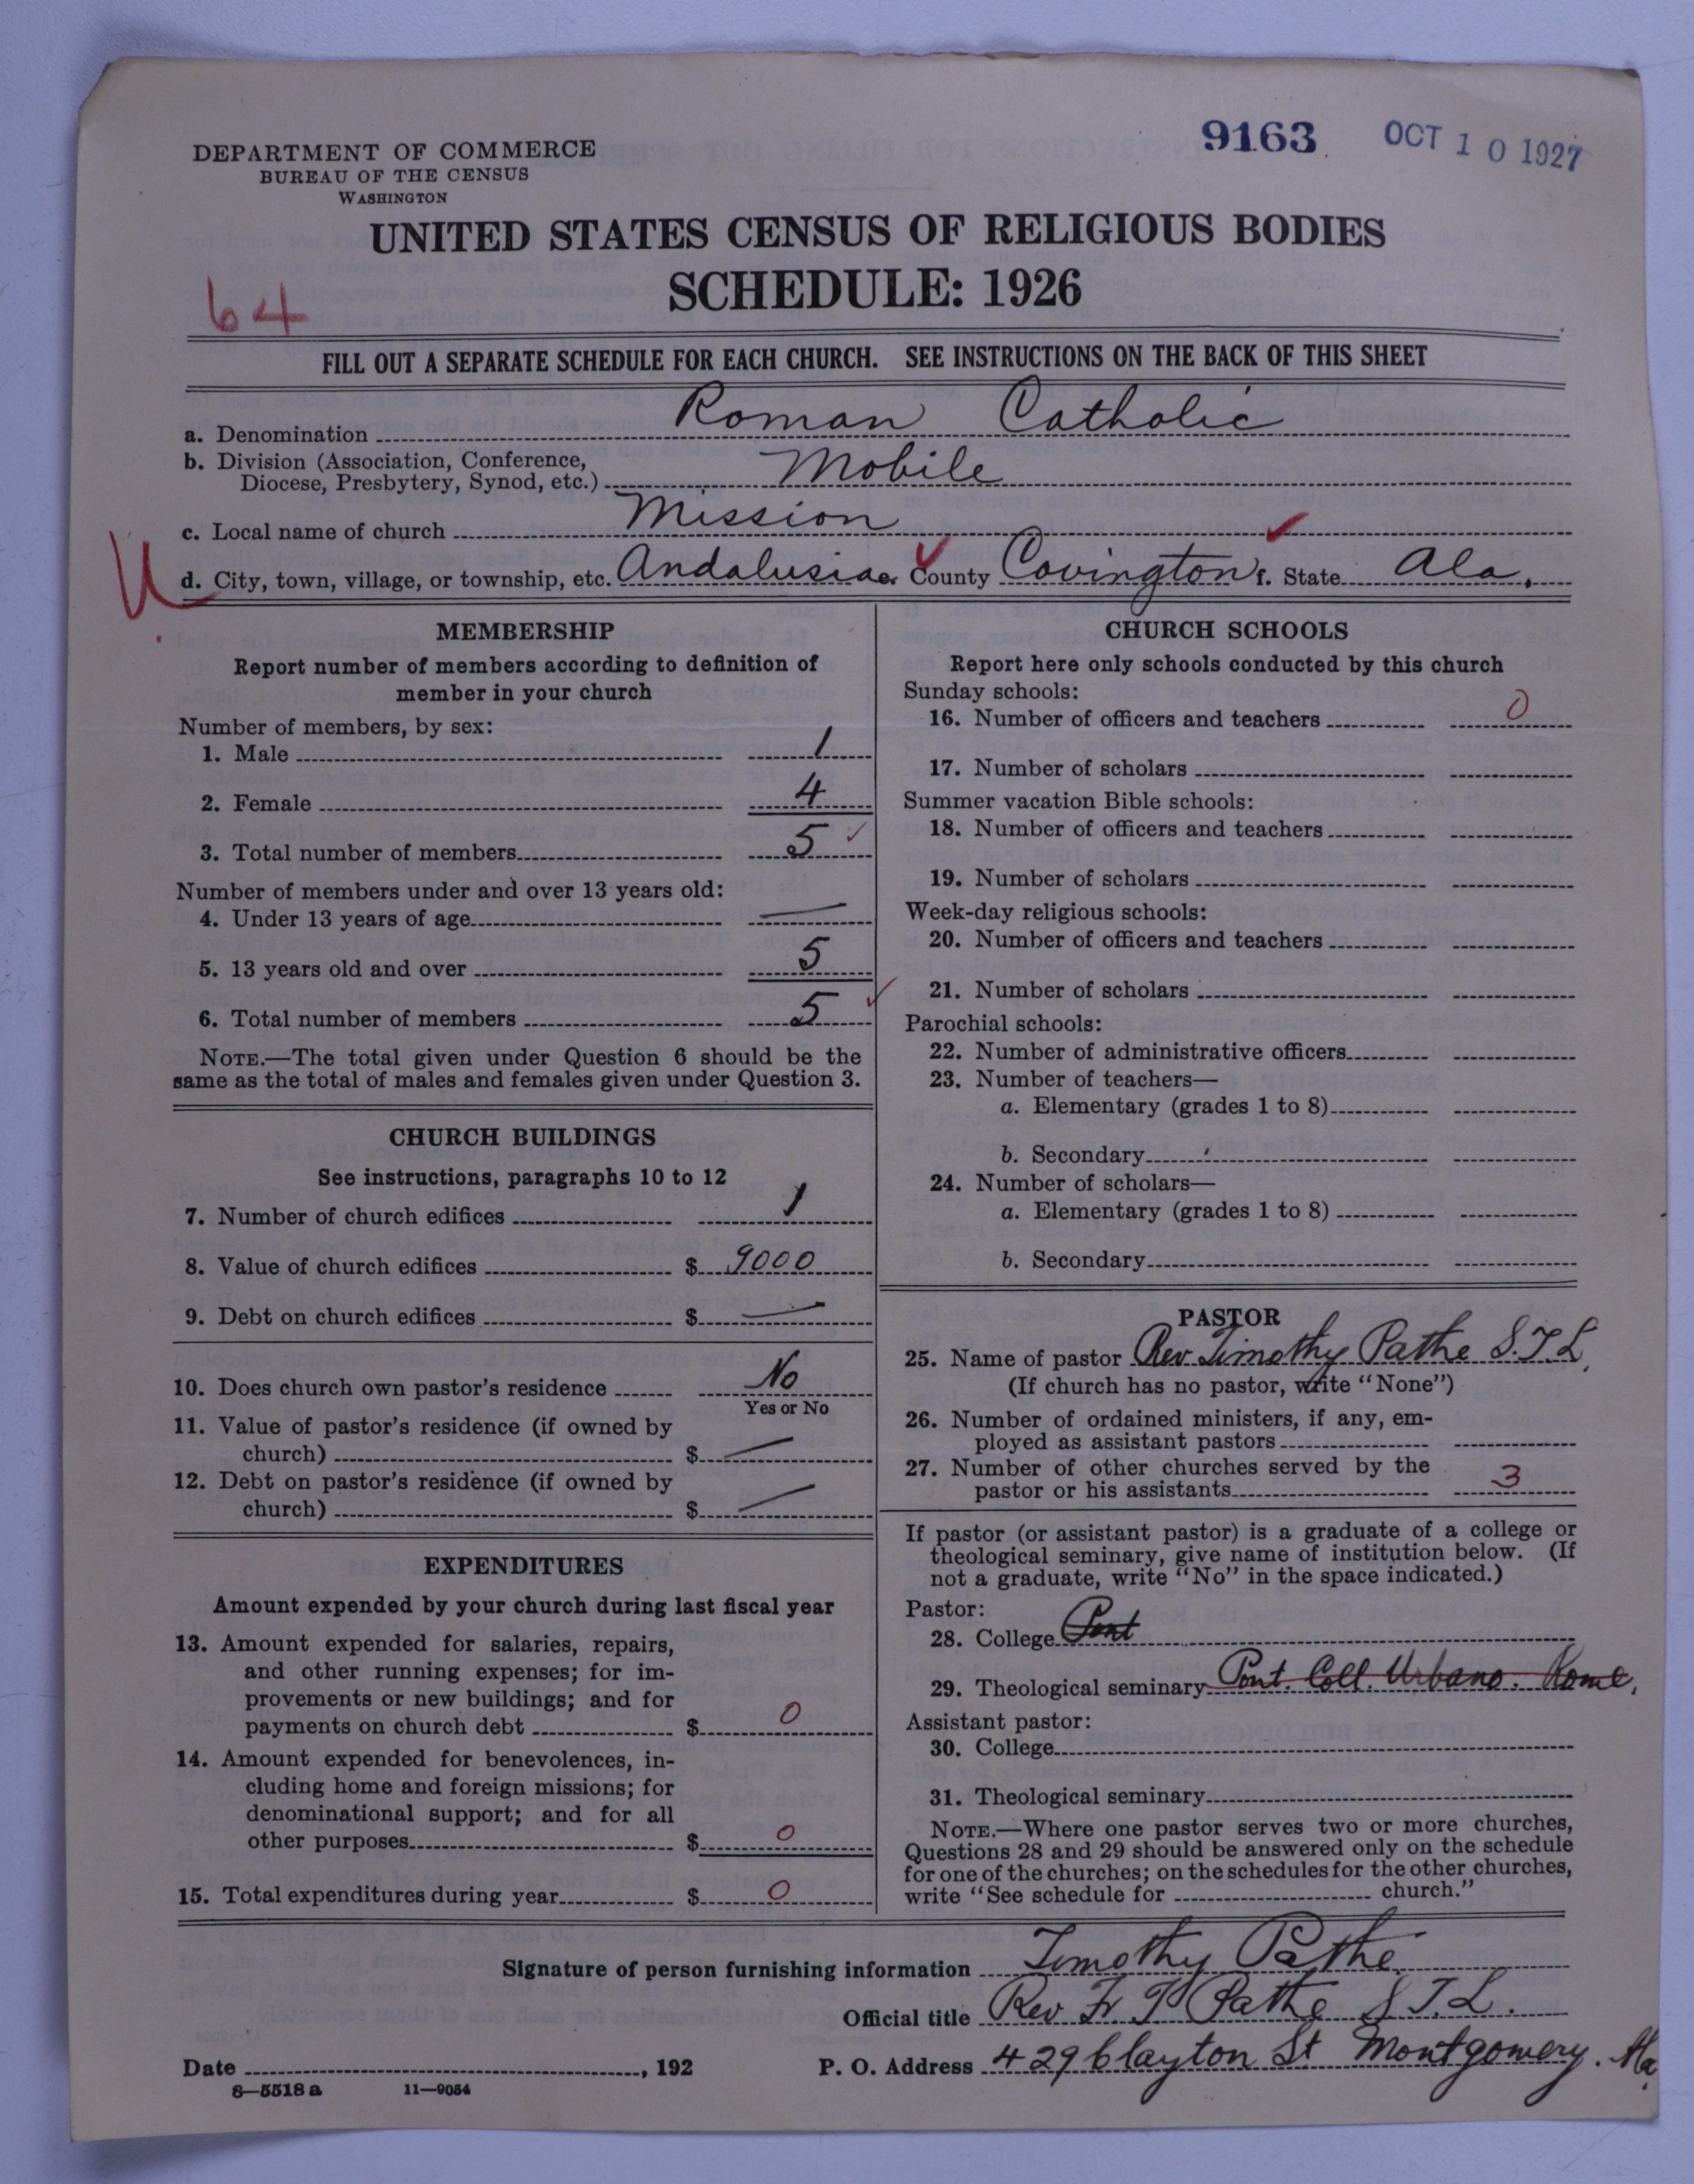 9163 OCT 10 1927
DEPARTMENT OF COMMERCE
BUREAU OF THE CENSUS
WASHINGTON
UNITED STATES CENSUS OF RELIGIOUS BODIES
SCHEDULE: 1926
64
FILL OUT A SEPARATE SCHEDULE FOR EACH CHURCH. SEE INSTRUCTIONS ON THE BACK OF THIS SHEET
a. Denomination Roman Catholic
b. Division (Association, Conference,
Diocese, Presbytery, Synod, etc.) Mobile
c. Local name of church Mission
d. City, town, village, or township, etc. Andalusia e. County Covington f. State Ala.
MEMBERSHIP
Report number of members according to definition of
member in your church
Number of members, by sex:
1. Male 1
2. Female 4
3. Total number of members 5
Number of members under and over 13 years old:
4. Under 13 years of age —
5. 13 years old and over 5
6. Total number of members 5
NOTE.—The total given under Question 6 should be the
same as the total of males and females given under Question 3.
CHURCH BUILDINGS
See instructions, paragraphs 10 to 12
7. Number of church edifices 1
8. Value of church edifices $ 9000
9. Debt on church edifices $ —
10. Does church own pastor's residence No
Yes or No
11. Value of pastor's residence (if owned by
church) $ —
12. Debt on pastor's residence (if owned by
church) $ —
EXPENDITURES
Amount expended by your church during last fiscal year
13. Amount expended for salaries, repairs,
and other running expenses; for im-
provements or new buildings; and for
payments on church debt $ 0
14. Amount expended for benevolences, in-
cluding home and foreign missions; for
denominational support; and for all
other purposes $ 0
15. Total expenditures during year $ 0
CHURCH SCHOOLS
Report here only schools conducted by this church
Sunday schools:
16. Number of officers and teachers 0
17. Number of scholars
Summer vacation Bible schools:
18. Number of officers and teachers
19. Number of scholars
Week-day religious schools:
20. Number of officers and teachers
21. Number of scholars
Parochial schools:
22. Number of administrative officers
23. Number of teachers—
a. Elementary (grades 1 to 8)
b. Secondary
24. Number of scholars—
a. Elementary (grades 1 to 8)
b. Secondary
PASTOR
25. Name of pastor Rev Timothy Pathe S.T.L.
(If church has no pastor, write "None")
26. Number of ordained ministers, if any, em-
ployed as assistant pastors
27. Number of other churches served by the
pastor or his assistants 3
If pastor (or assistant pastor) is a graduate of a college or
theological seminary, give name of institution below. (If
not a graduate, write "No" in the space indicated.)
Pastor:
28. College Pont
29. Theological seminary Pont. Coll. Urbano. Rome.
Assistant pastor:
30. College
31. Theological seminary
NOTE.—Where one pastor serves two or more churches,
Questions 28 and 29 should be answered only on the schedule
for one of the churches; on the schedules for the other churches,
write "See schedule for church."
Signature of person furnishing information Timothy Pathe
Official title Rev Fr T Pathe S.T.L.
Date , 192 P. O. Address 429 Clayton St Montgomery. Ala.
8—5518 a 11—9054